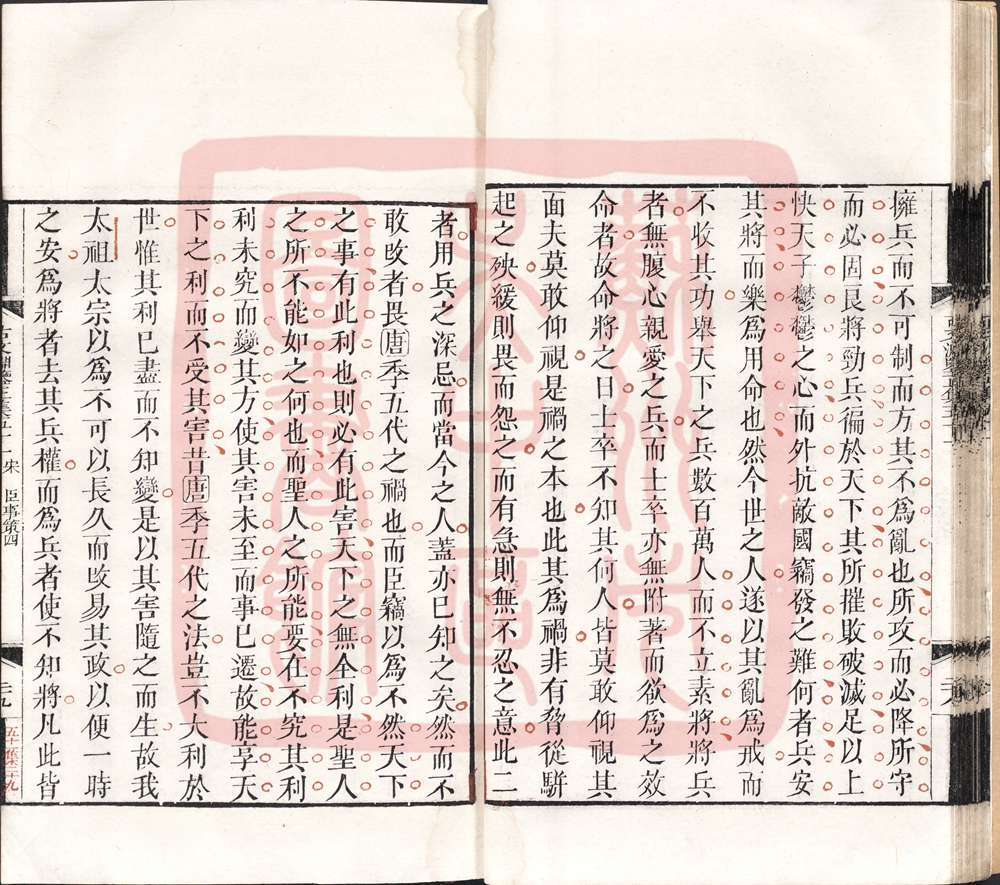 擁兵而不可制而方其不爲亂也所攻而必降所守
而必固良將勁兵徧於天下其所摧敗破滅足以上
快天子鬱鬱之心而外抗敵國竊發之難何者兵安
其將而樂爲用命也然今世之人遂以其亂爲戒而
不收其功舉天下之兵數百萬人而不立素將將兵
者無腹心親愛之兵而士卒亦無附著而欲爲之效
命者故命將之日士卒不知其何人皆莫敢仰視其
面夫莫敢仰視是禍之本也此其爲禍非有脅從駢
起之殃緩則畏而怨之而有急則無不忍之意此二
者用兵之深忌而當今之人蓋亦已知之矣然而不
敢改者畏唐季五代之禍也而臣竊以爲不然天下
之事有此利也則必有此害天下之無全利是聖人
之所不能如之何也而聖人之所能要在不究其利
利未究而變其方使其害未至而事已遷故能享天
下之利而不受其害昔唐季五代之法豈不大利於
世惟其利已盡而不知變是以其害隨之而生故我
太祖太宗以爲不可以長久而改易其政以便一時
之安爲將者去其兵權而爲兵者使不知將凡此皆
宋 臣事第四